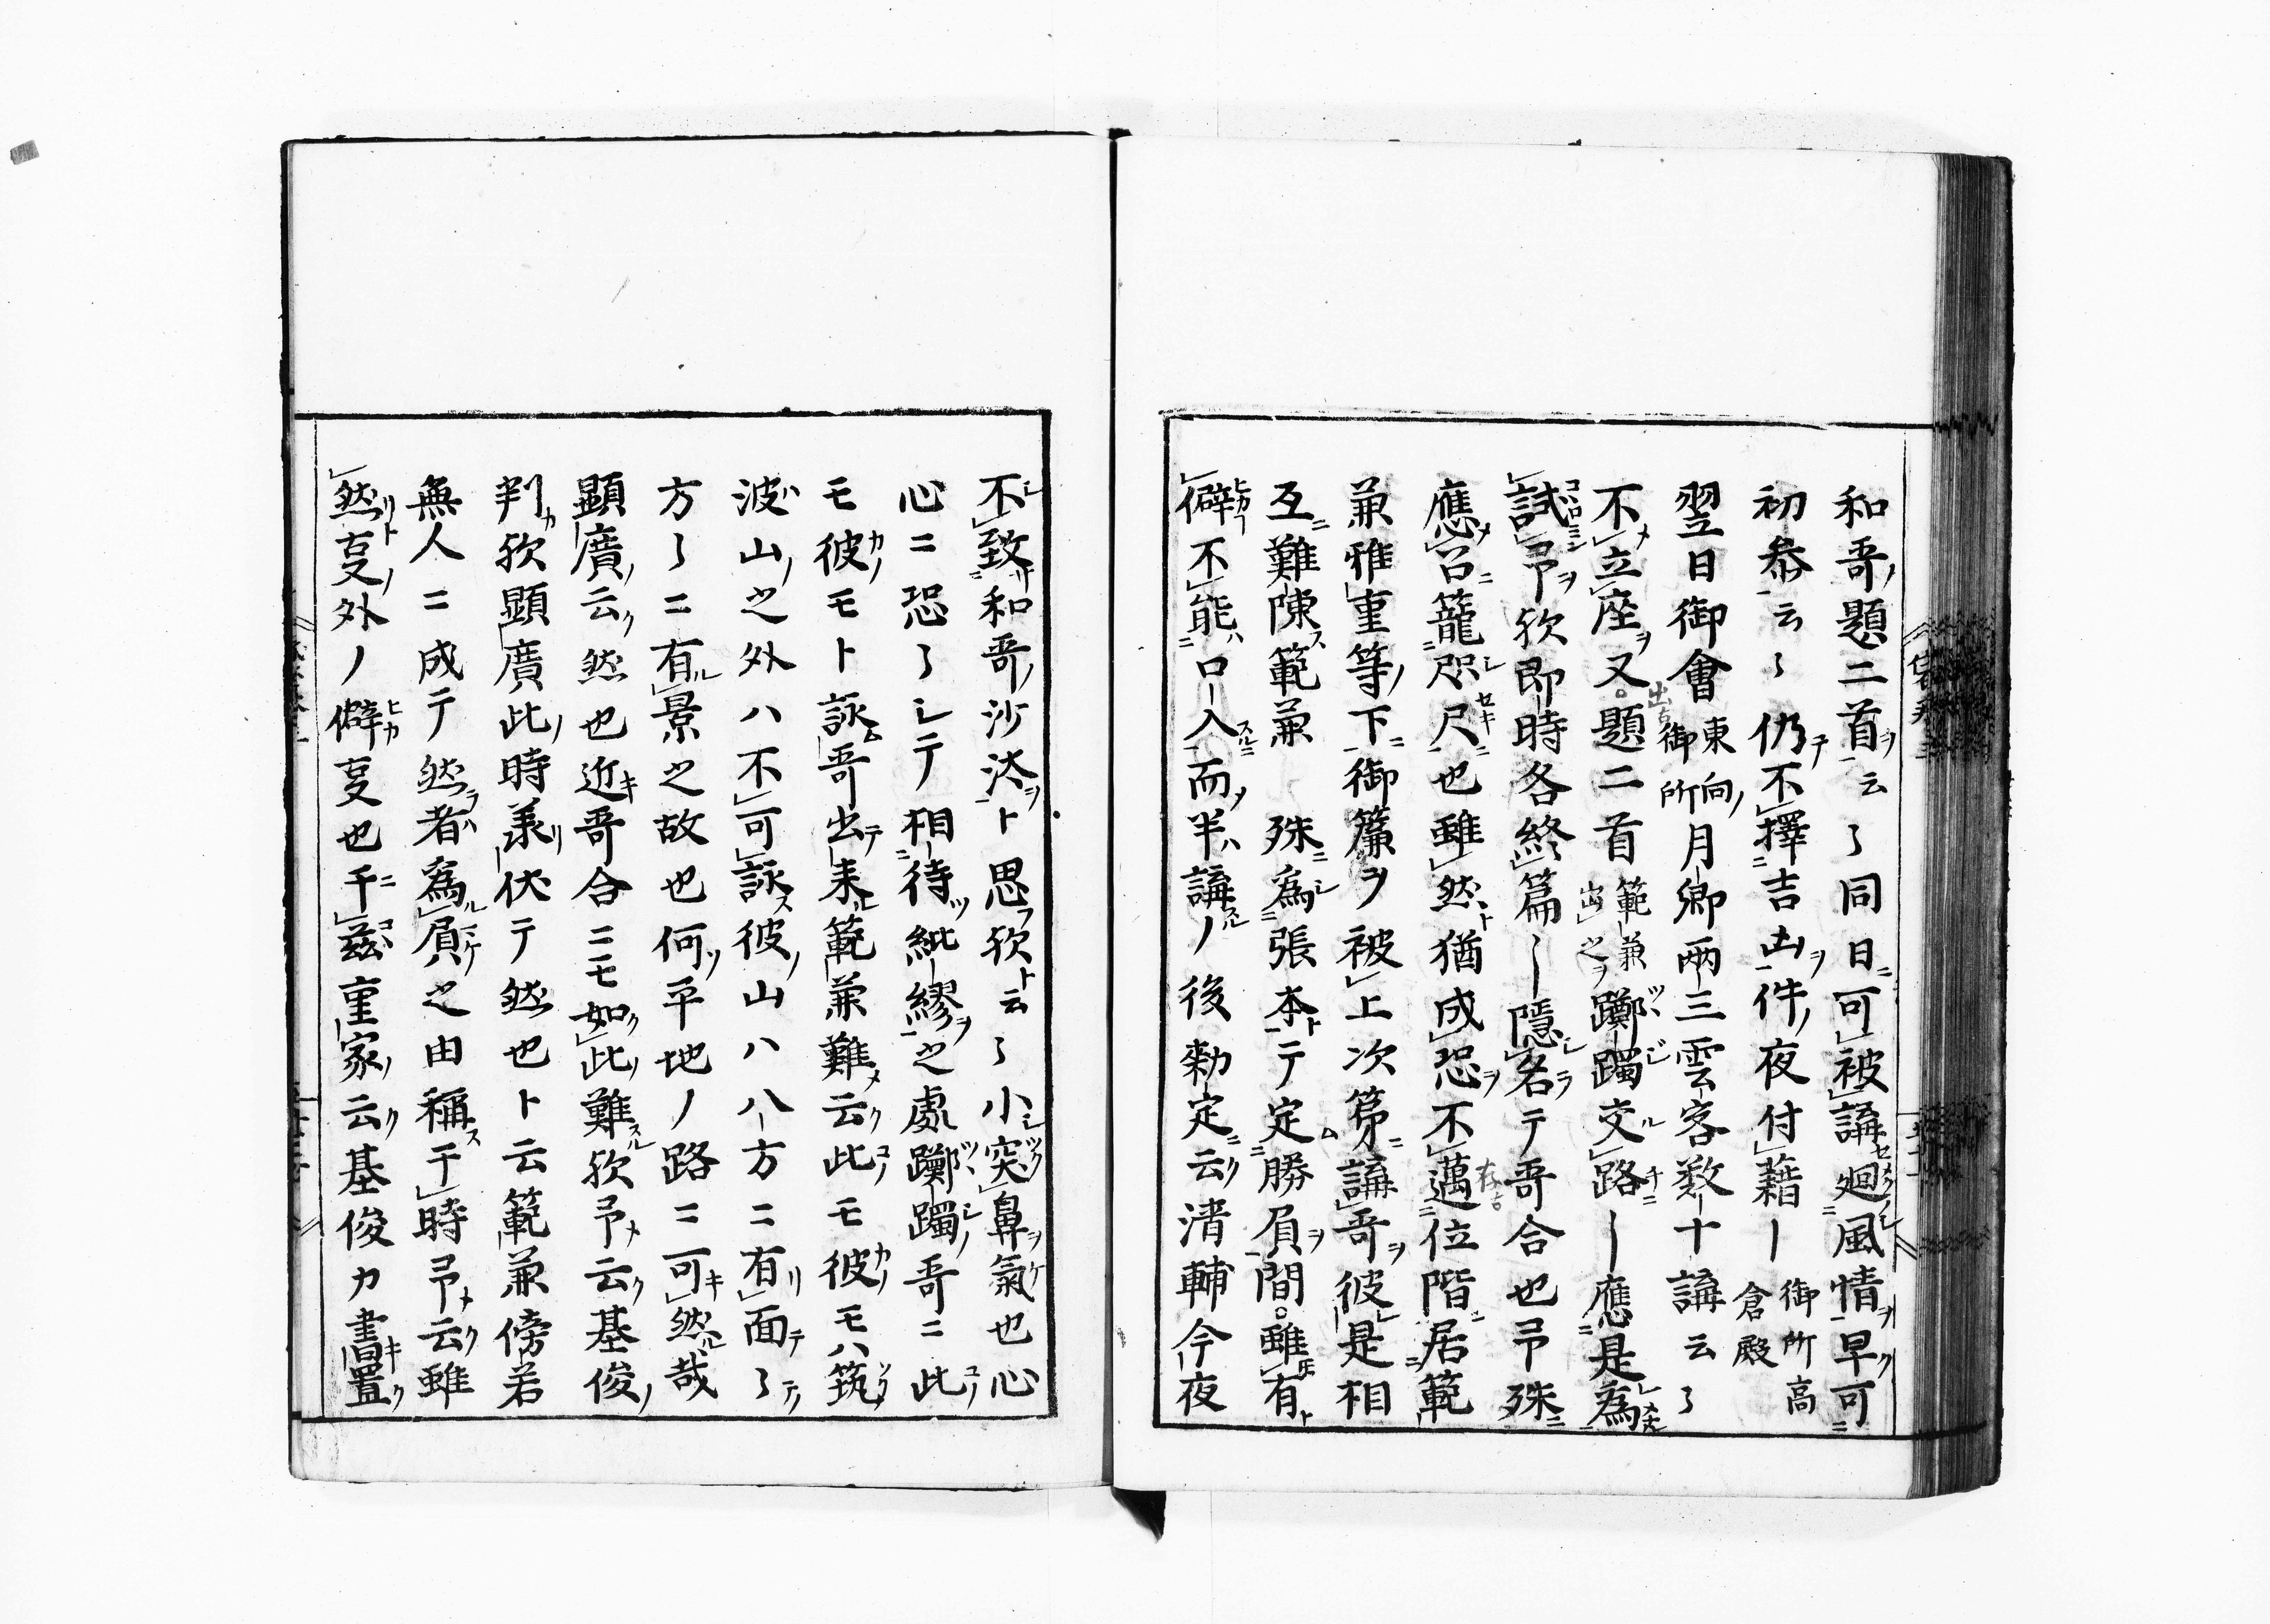 和哥ノ題二首ヲ云〻同日ニ可被講セ廻風情ヲ早ク可
初参云〻仍テ不擇吉凶ヲ件ノ夜付藉ー御所高倉殿
翌日御會東向ノ御所月卿兩三雲客数十講云〻
不立座ヲ又題二首範兼出之ヲ躑躅交ル路ー應是為
試コロミシ予ヲ欤即時各終篇ー隠シ名ラテ哥合也予殊ニ
應召ニ籠咫尺ニ也雖然ト猶成恐ヲ不邁位階ニ居範
兼雅重等ノ下ニ御簾ヲ被上次第ニ講哥ヲ彼是相
互ニ難陳ス範兼 殊ニ為シ張本トテ定ム勝負ヲ間雖有ト
僻ヒカ不能ハ口入スルニ而半ハ講スルノ後勅定ニ云ク清輔今夜
不致和哥ノ沙汰ヲト思フ欤ト云〻小突鼻ヲ氣ケ也心
心ニ恐〻シテ相待ツ紕繆ヲ之處躑躅ノ哥ニ此コノ
モ彼カノモト詠ム哥出テ来ル範兼難メ云ク此コノモ彼カノモハ筑
波山ノ之外ハ不可詠ス彼ノ山ハ八方ニ有リ面テ〻テ
方〻ニ有ル景之故也何ソ平地ノ路ニ可キ然ル哉
顕廣ノ云ク然也近キ哥合ニモ如ク此ノ難スル欤予メ云ク基俊ノ
判カ欤顕廣此ノ時義リ伏テ然也ト云範兼傍若
無人ニ成テ然ラ者ハ為ル負ケ之由稱ス于時予メ云ク雖
然リト㕝ノ外ノ僻ヒカ㕝也千ニ茲コヽ重家ノ云ク基俊カ書キ置ク